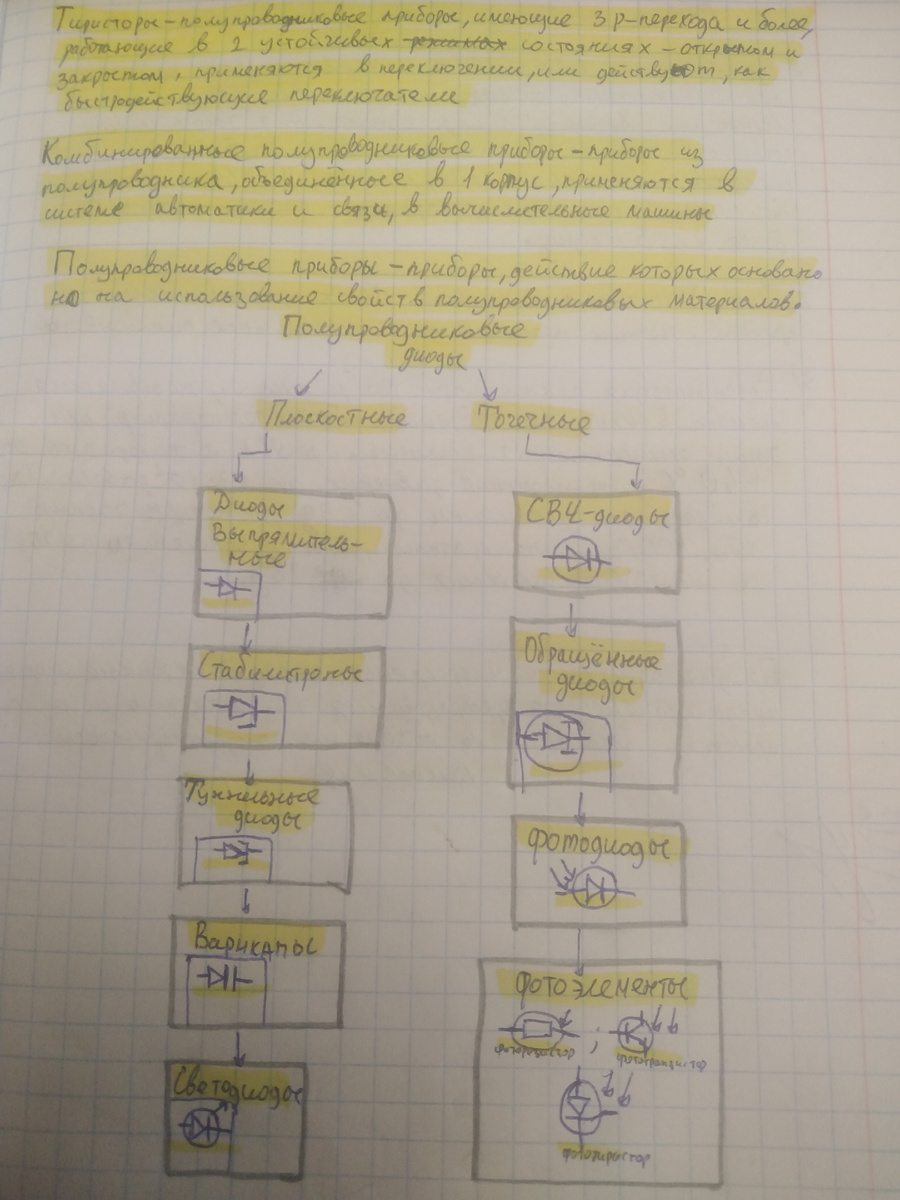 Тиристоры-полупроводниковые приборы, имеющие 3 p-перехода и более,
работающие в 2 устойчивых режимах состояниях - открытом и
закрытом, применяются в переключении, или действуют, как
быстродействующие переключатели
Комбинированные полупроводниковые приборы - приборы из
полупроводника, объединённые в 1 корпус, применяются в
системе автоматики и связи, в вычислительные машины
Полупроводниковые приборы - приборы, действие которых основано
но на использование свойств полупроводниковых материалов.
Полупроводниковые
диоды
Плоскостные
Точечные
Диоды
Выпрямитель-
ные
СВЧ-диоды
Стабилитроны
Обращённые
диоды
Туннельные
диоды
Фотодиоды
Варикапы
Фотоэлементы
фоторезистор ; фототранзистор
Светодиоды
фототиристор